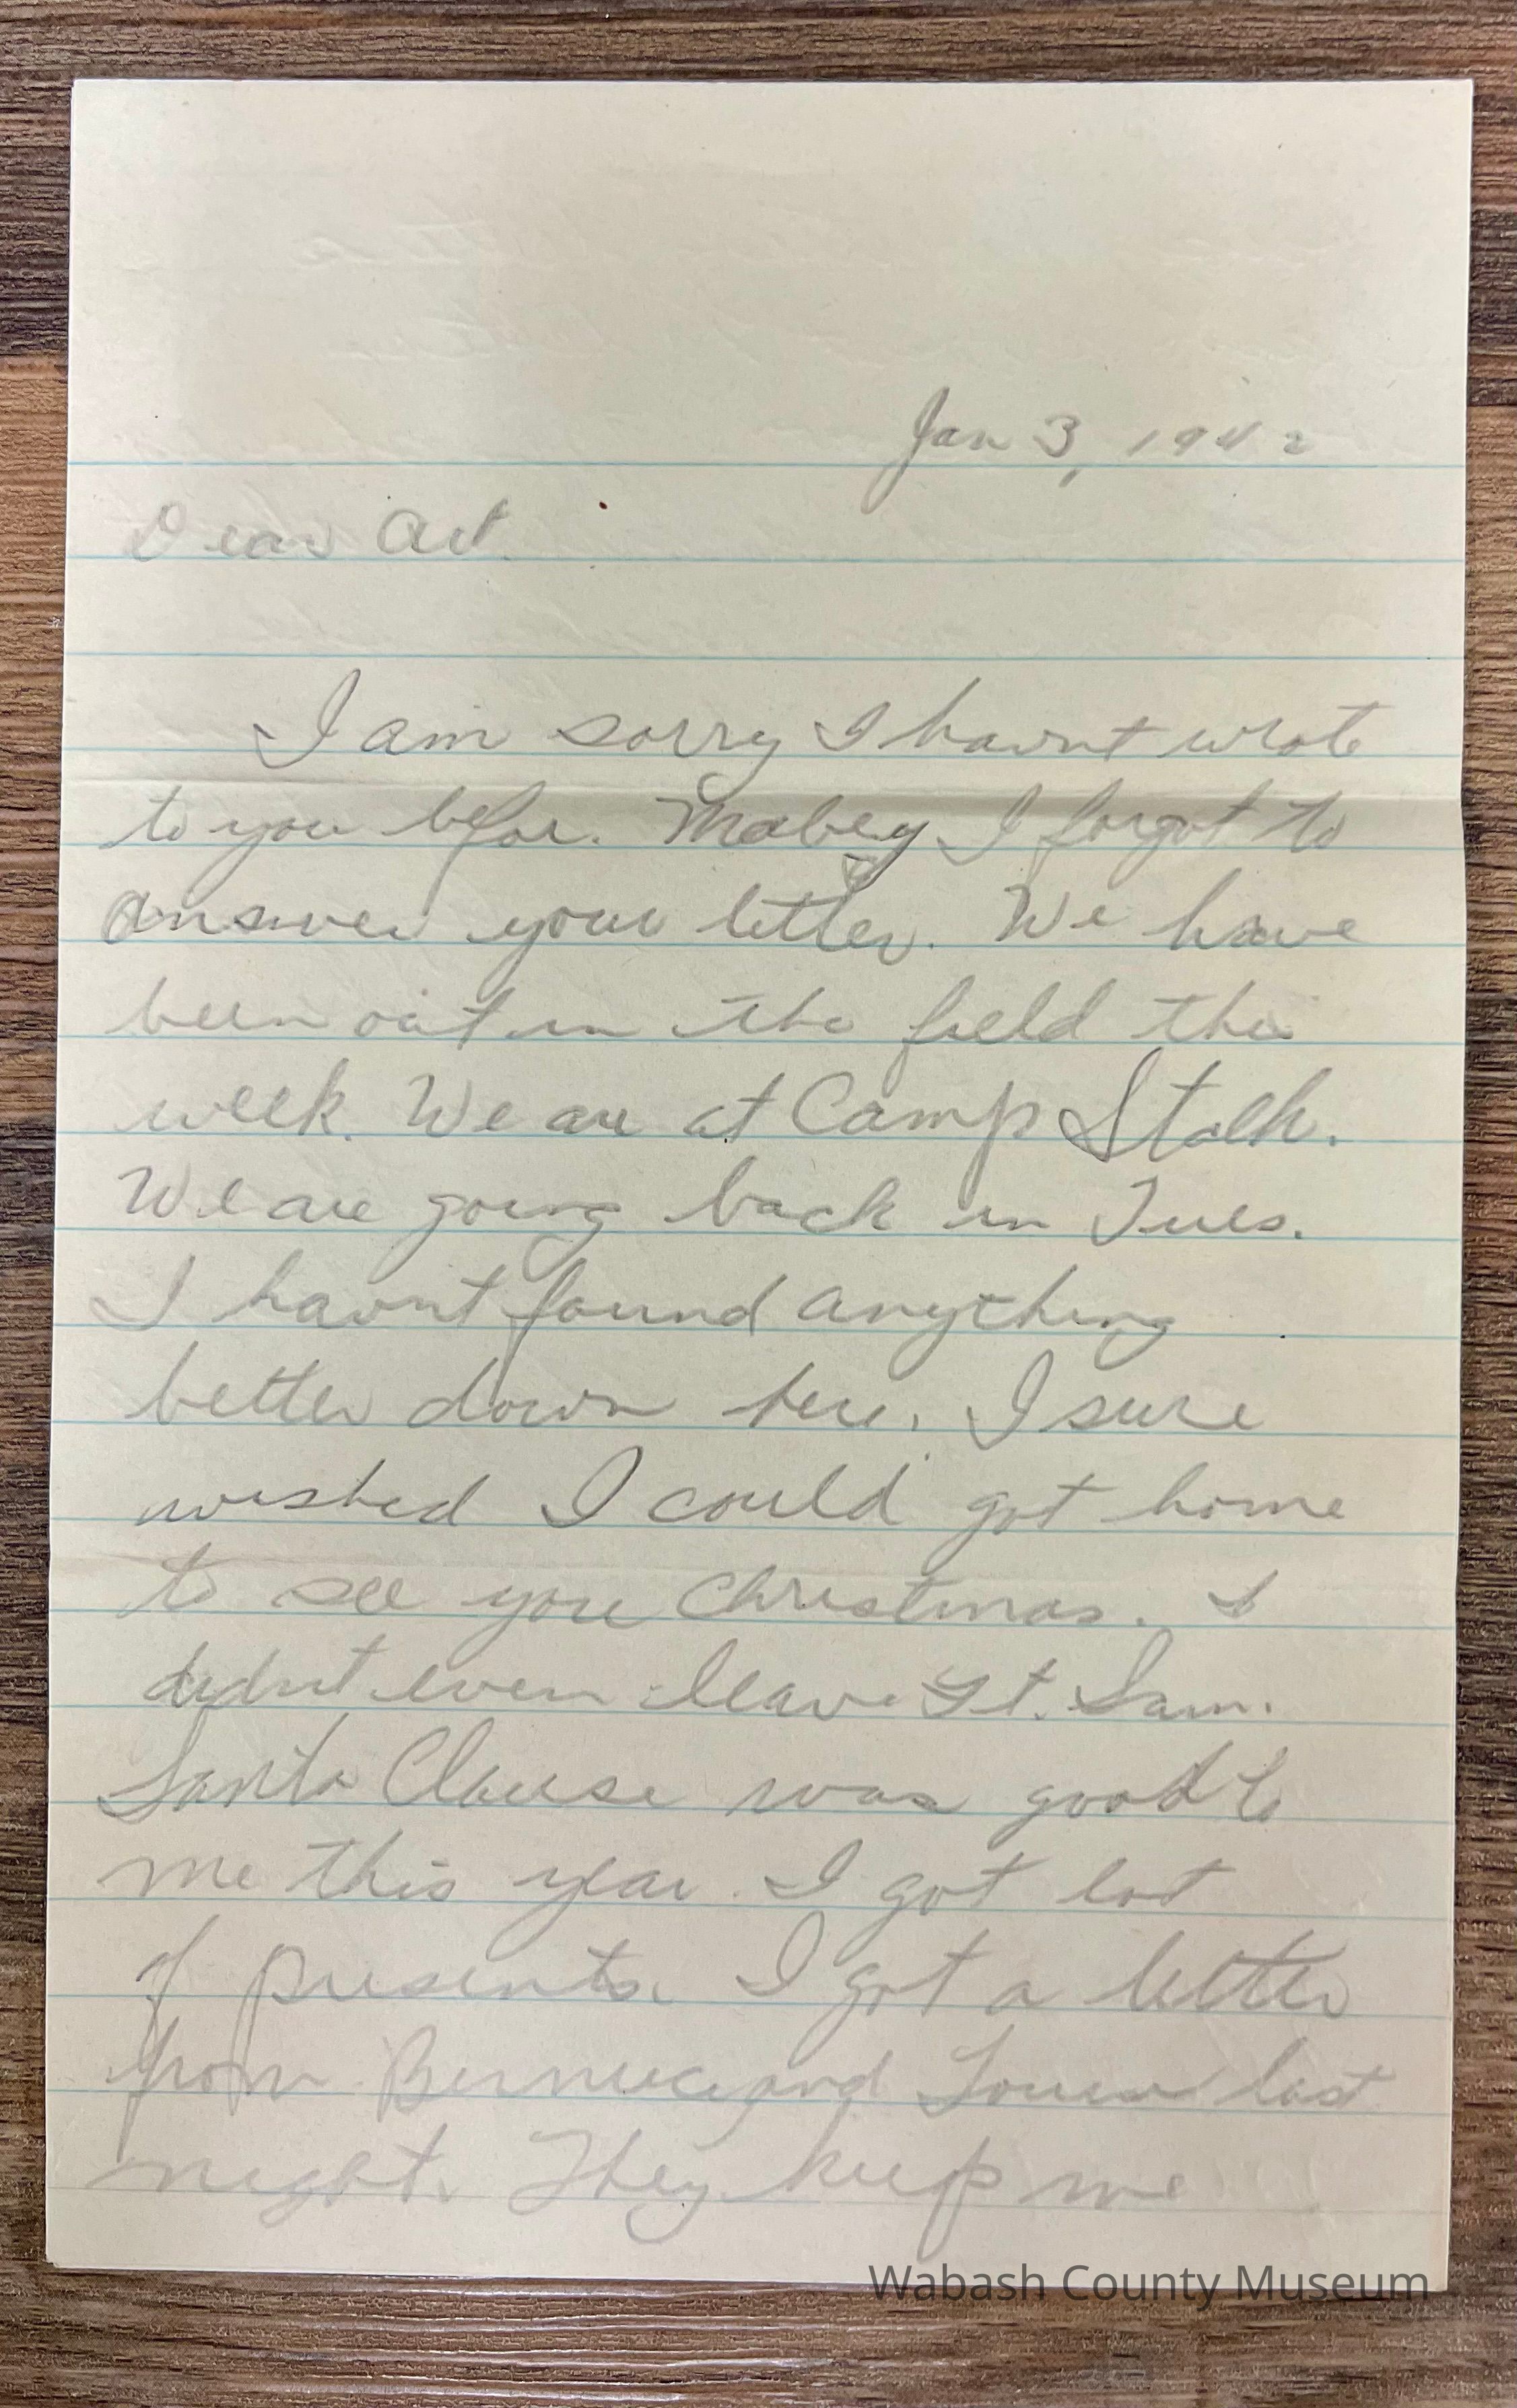 Jan 3, 1942
Dear Art.
I am sorry I havnt wrote
to you befor. Mabey I forgot to
answer your letter. We have
been out in the field this
week. We are at Camp
We are going back in Tues.
I havnt found anything
better down here. I sure
wished I could got home
to see you Christmas. I
didnt even leave Ft. Sam.
Santa Clause was good to
me this year. I got lot
of presents. I got a letter
from Bernice and last
night. They keep me
Wabash County Museum